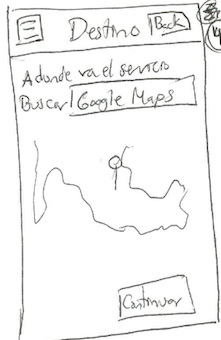 Destino Back
Adonde va el servicio
Buscar Google Maps
Continuar